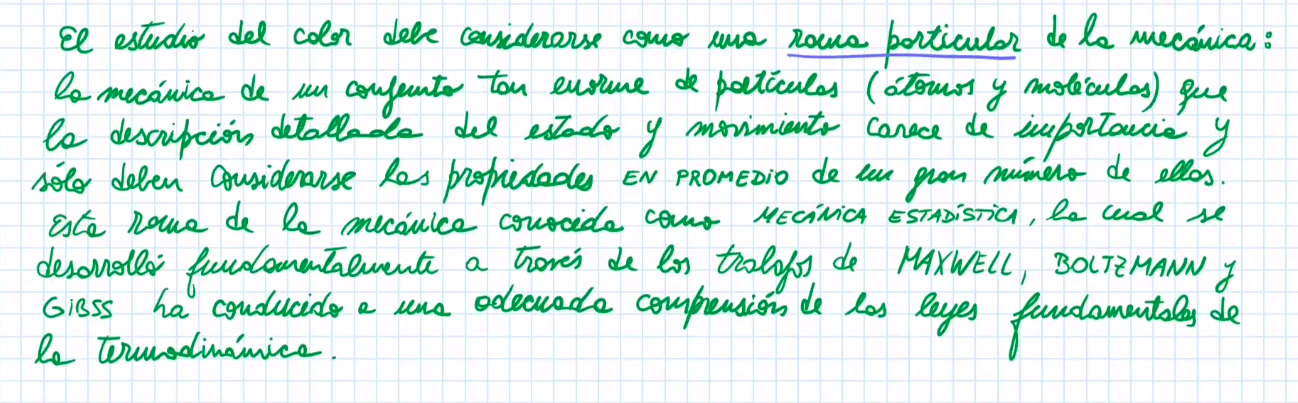 El estudio del color debe considerarse como una rama particular de la mecánica:
la mecánica de un conjunto tan enorme de partículas (átomos y moléculas) que
la descripción detallada del estado y movimiento carece de importancia y
sólo deben considerarse las propiedades EN PROMEDIO de un gran número de ellas.
Esta rama de la mecánica conocida como MECÁNICA ESTADÍSTICA, la cual se
desarrolló fundamentalmente a través de los trabajos de MAXWELL, BOLTZMANN y
GIBSS ha conducido a una adecuada comprensión de las leyes fundamentales de
la termodinámica.